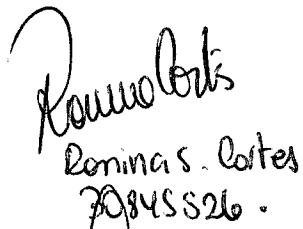 Romina Cortés
Romina S. Cortes
30.845526.